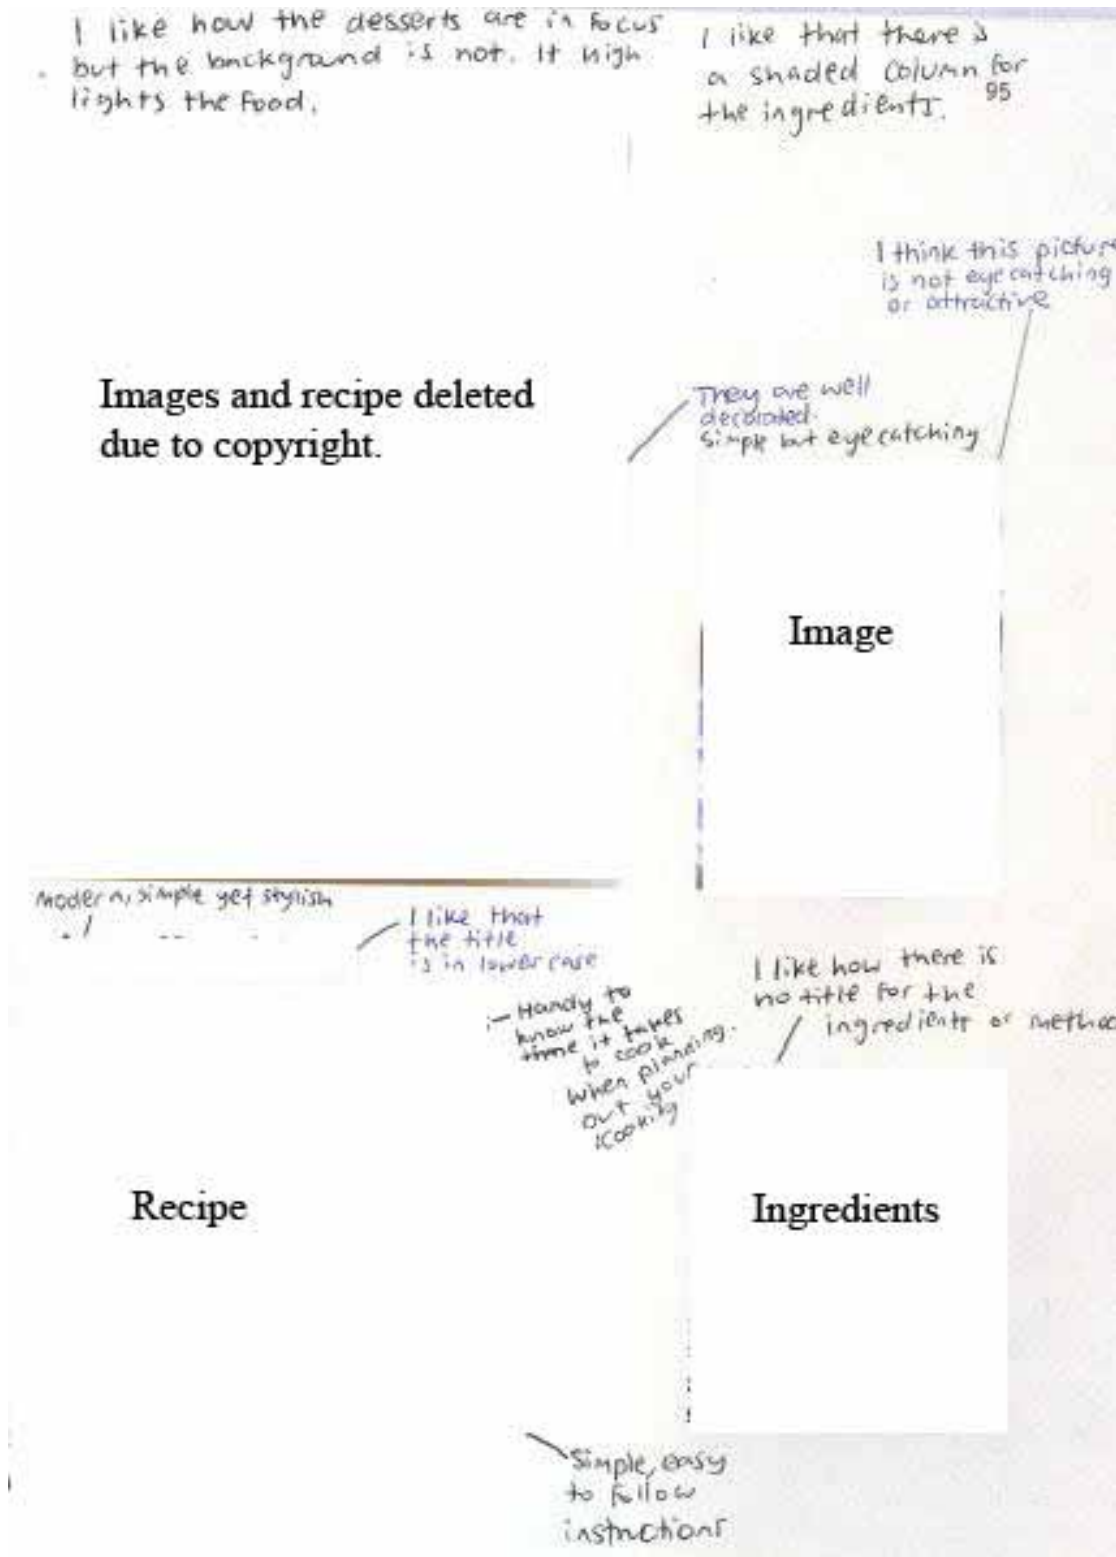 I like how the desserts are in focus
but the background is not. It high
lights the food.
I like that there is
a shaded column for
the ingredients.
95
I think this picture
is not eyecatching
or attractive
Images and recipe deleted
due to copyright.
They are well
decorated.
Simple but eyecatching
Image
Modern, simple yet stylish
I like that
the title
is in lower case
Handy to
know the
time it takes
to cook
when planning
out your
cooking.
I like how there is
no title for the
ingredients or method
Recipe
Ingredients
Simple, easy
to follow
instructions